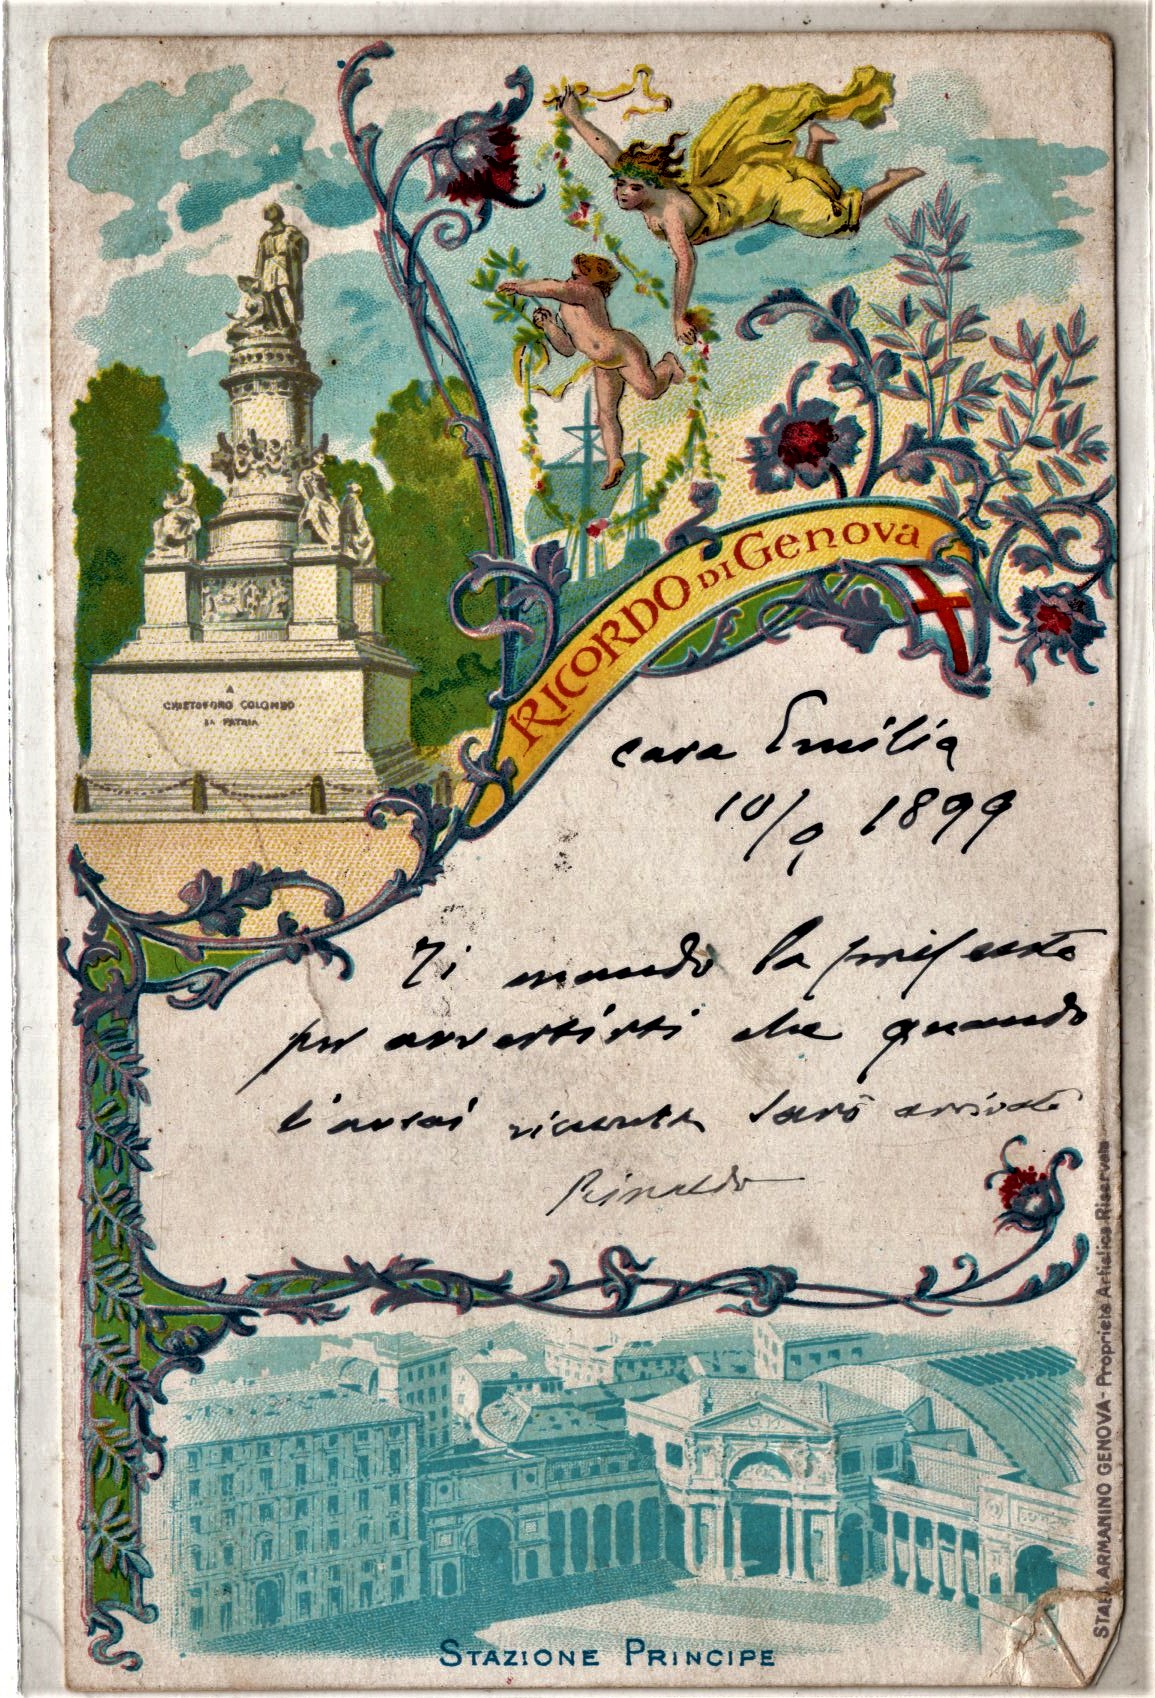 A
CRISTOFORO COLOMBO
LA PATRIA
RICORDO DI GENOVA
cara Emilia
10/9 1899
Ti mando la presente
per avvertirti che quando
l'avrai ricevuta sarò arrivato
Rinaldo
STAB. ARMANINO GENOVA - Proprietà Artistica Riservata
STAZIONE PRINCIPE